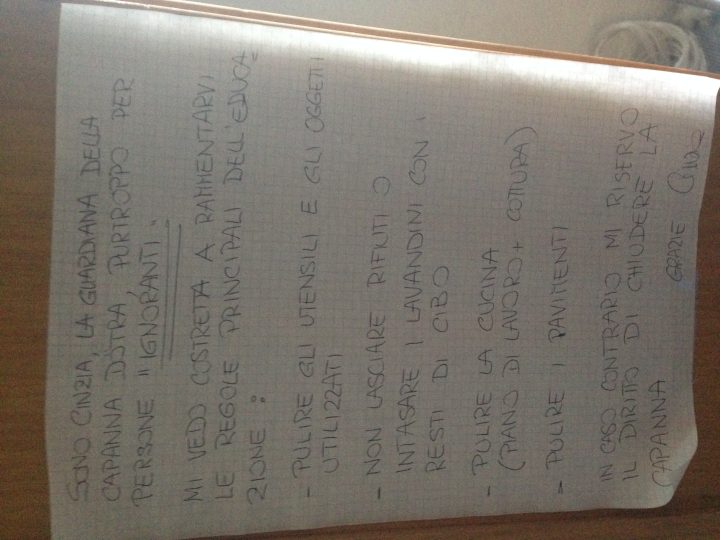 SONO CINZIA, LA GUARDIANA DELLA
CAPANNA DÖTRA, PURTROPPO PER
PERSONE "IGNORANTI.
MI VEDO COSTRETTA A RAMMENTARVI
LE REGOLE PRINCIPALI DELL'EDUCA=
ZIONE:
- PULIRE GLI UTENSILI E GLI OGGETTI
UTILIZZATI
- NON LASCIARE RIFIUTI O
INTASARE I LAVANDINI CON I
RESTI DI CIBO
- PULIRE LA CUCINA
(PIANO DI LAVORO + COTTURA)
- PULIRE I PAVIMENTI
IN CASO CONTRARIO MI RISERVO
IL DIRITTO DI CHIUDERE LA
CAPANNA
GRAZIE Cinzia